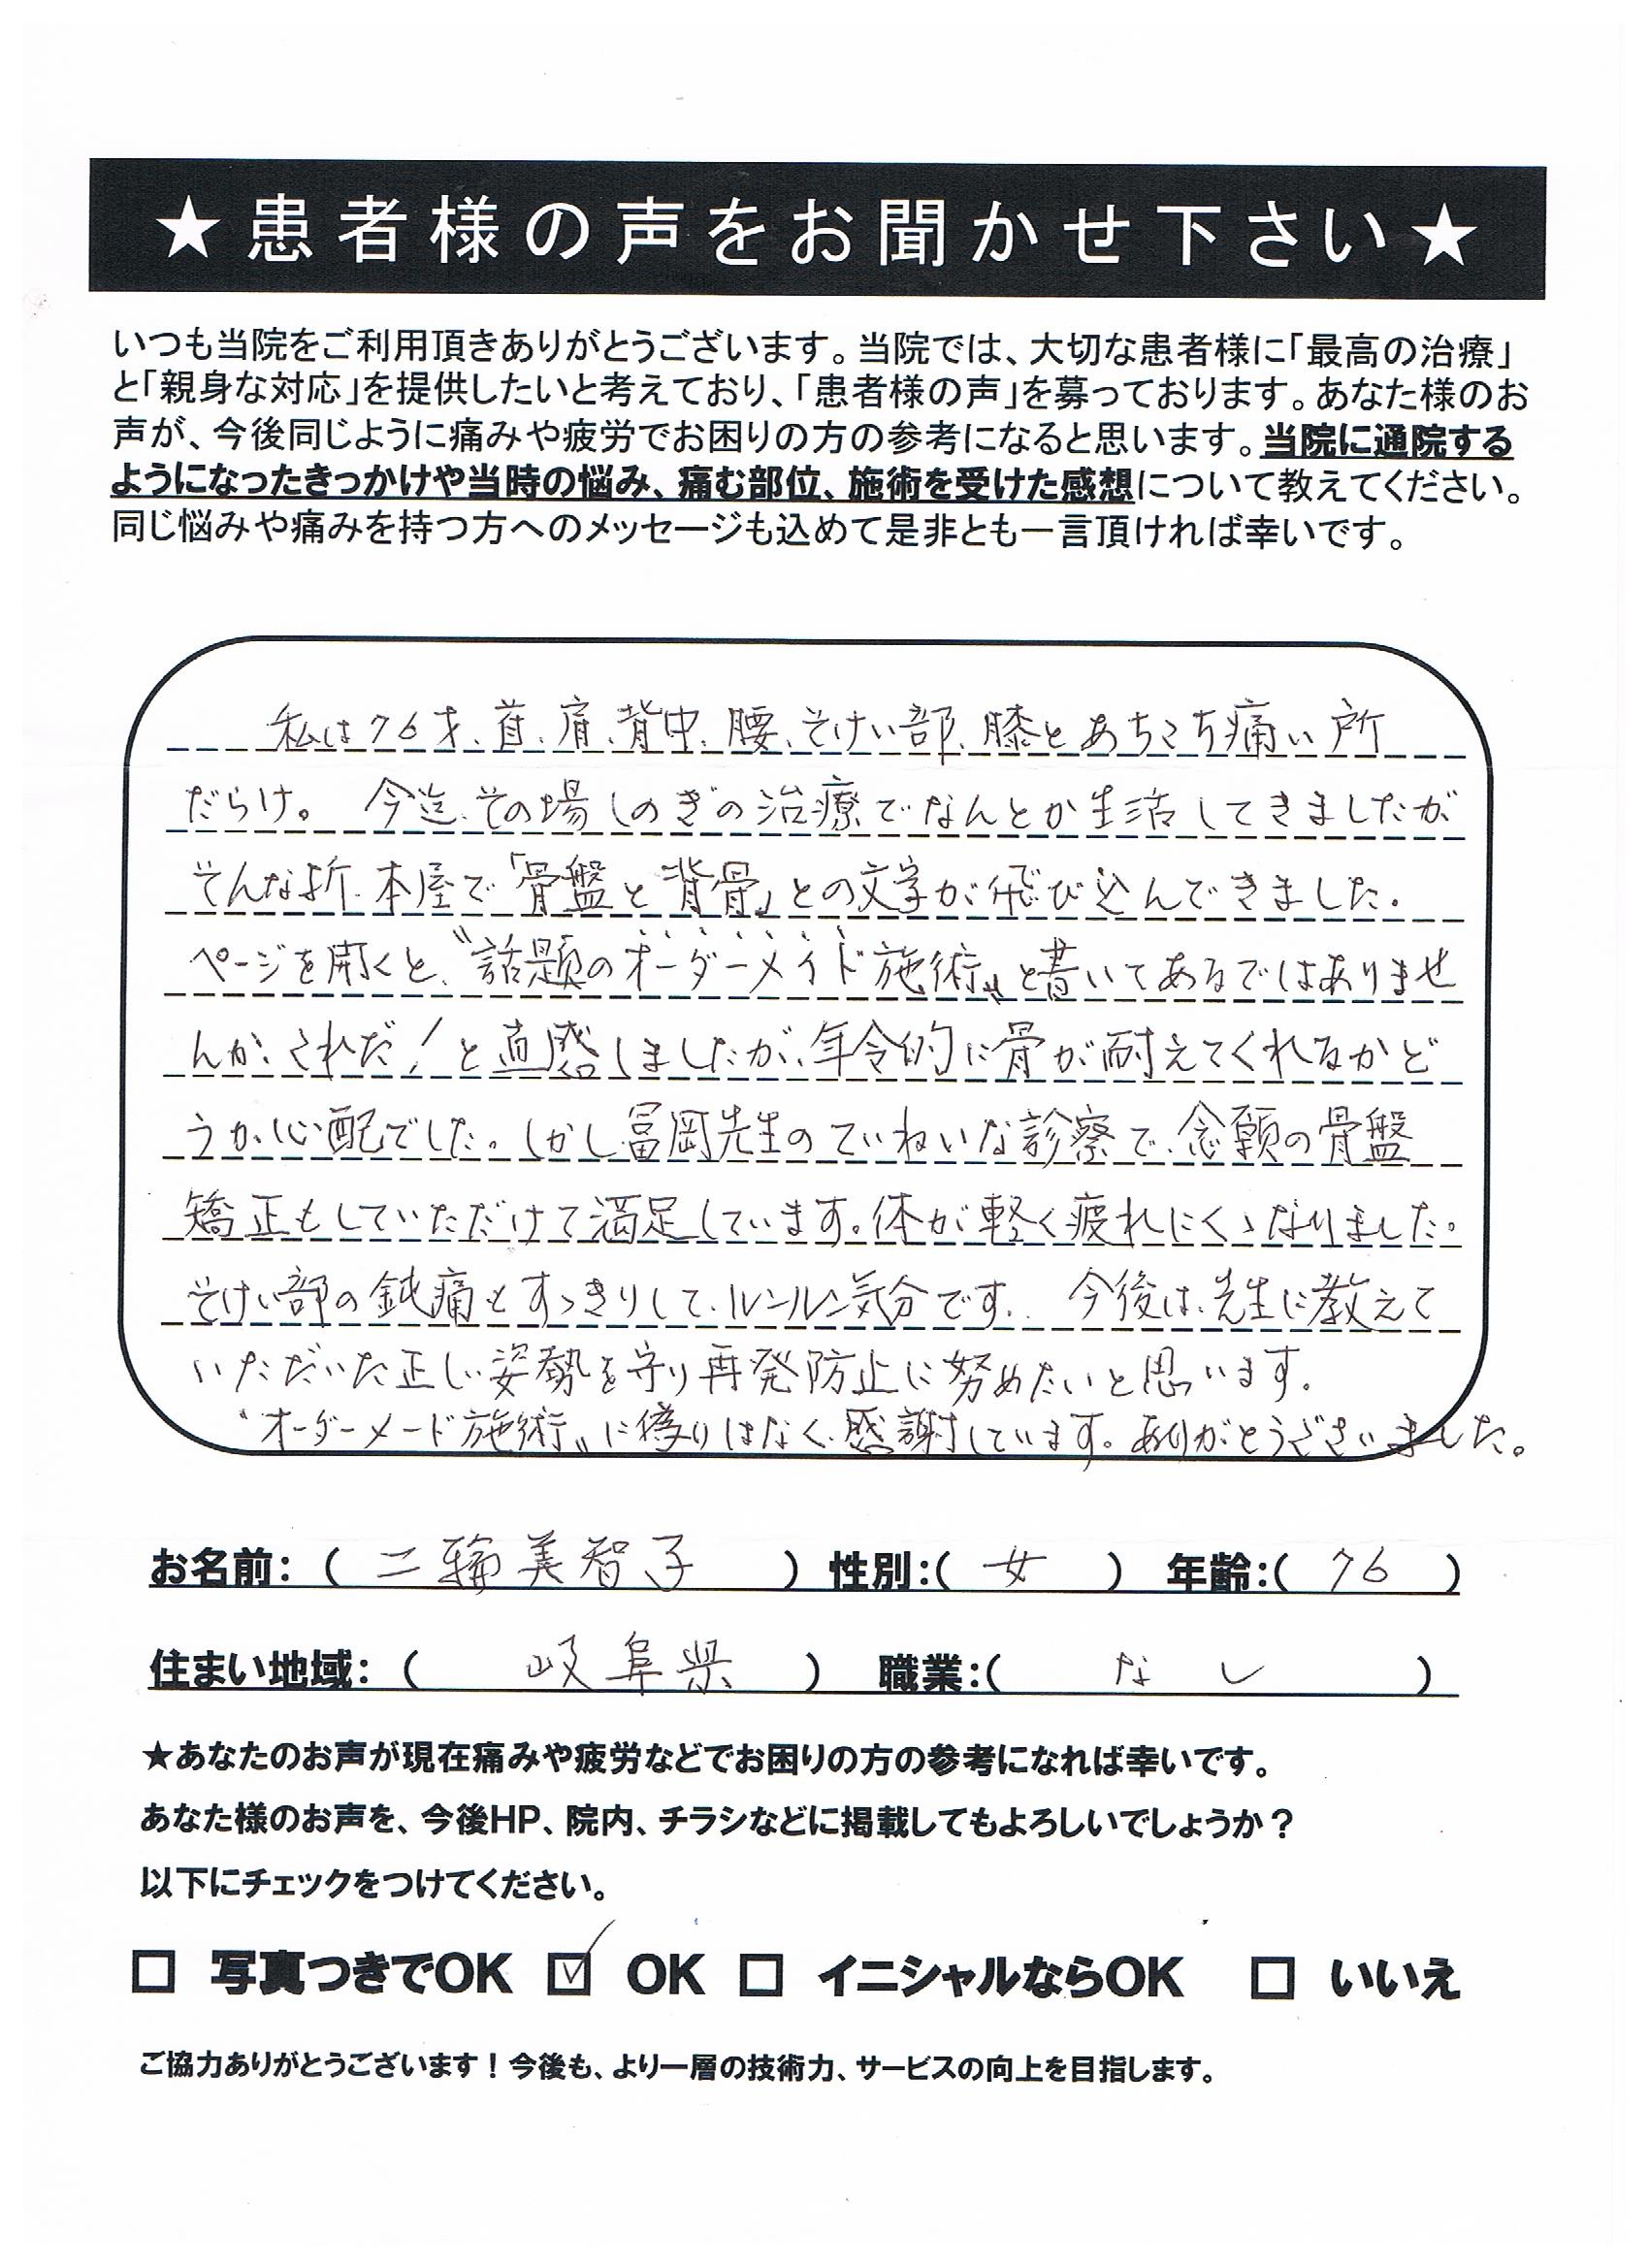 ★患者様の声をお聞かせ下さい★
いつも当院をご利用頂きありがとうございます。当院では、大切な患者様に「最高の治療」
と「親身な対応」を提供したいと考えており、「患者様の声」を募っております。あなた様のお
声が、今後同じように痛みや疲労でお困りの方の参考になると思います。当院に通院する
ようになったきっかけや当時の悩み、痛む部位、施術を受けた感想について教えてください。
同じ悩みや痛みを持つ方へのメッセージも込めて是非とも一言頂ければ幸いです。
私は76才、首、肩、背中、腰、そけい部、膝とあちこち痛い所
だらけ。今迄、その場しのぎの治療でなんとか生活してきましたが
そんな折、本屋で「骨盤と背骨」との文字が飛び込んできました。
ページを開くと、〝話題のオーダーメイド施術〟と書いてあるではありませ
んか、これだ！と直感しましたが、年令的に骨が耐えてくれるかど
うか心配でした。しかし冨岡先生のていねいな診察で、念願の骨盤
矯正もしていただけて満足しています。体が軽く疲れにくゝなりました。
そけい部の鈍痛もすっきりして、ルンルン気分です。今後は、先生に教えて
いただいた正しい姿勢を守り再発防止に努めたいと思います。
〝オーダーメード施術〟に偽りはなく、感謝しています。ありがとうございました。
お名前：（ 二輪美智子 ） 性別：（ 女 ） 年齢：（ 76 ）
住まい地域：（ 岐阜県 ） 職業：（ なし ）
★あなたのお声が現在痛みや疲労などでお困りの方の参考になれば幸いです。
あなた様のお声を、今後HP、院内、チラシなどに掲載してもよろしいでしょうか？
以下にチェックをつけてください。
□ 写真つきでOK ☑ OK □ イニシャルならOK □ いいえ
ご協力ありがとうございます！今後も、より一層の技術力、サービスの向上を目指します。